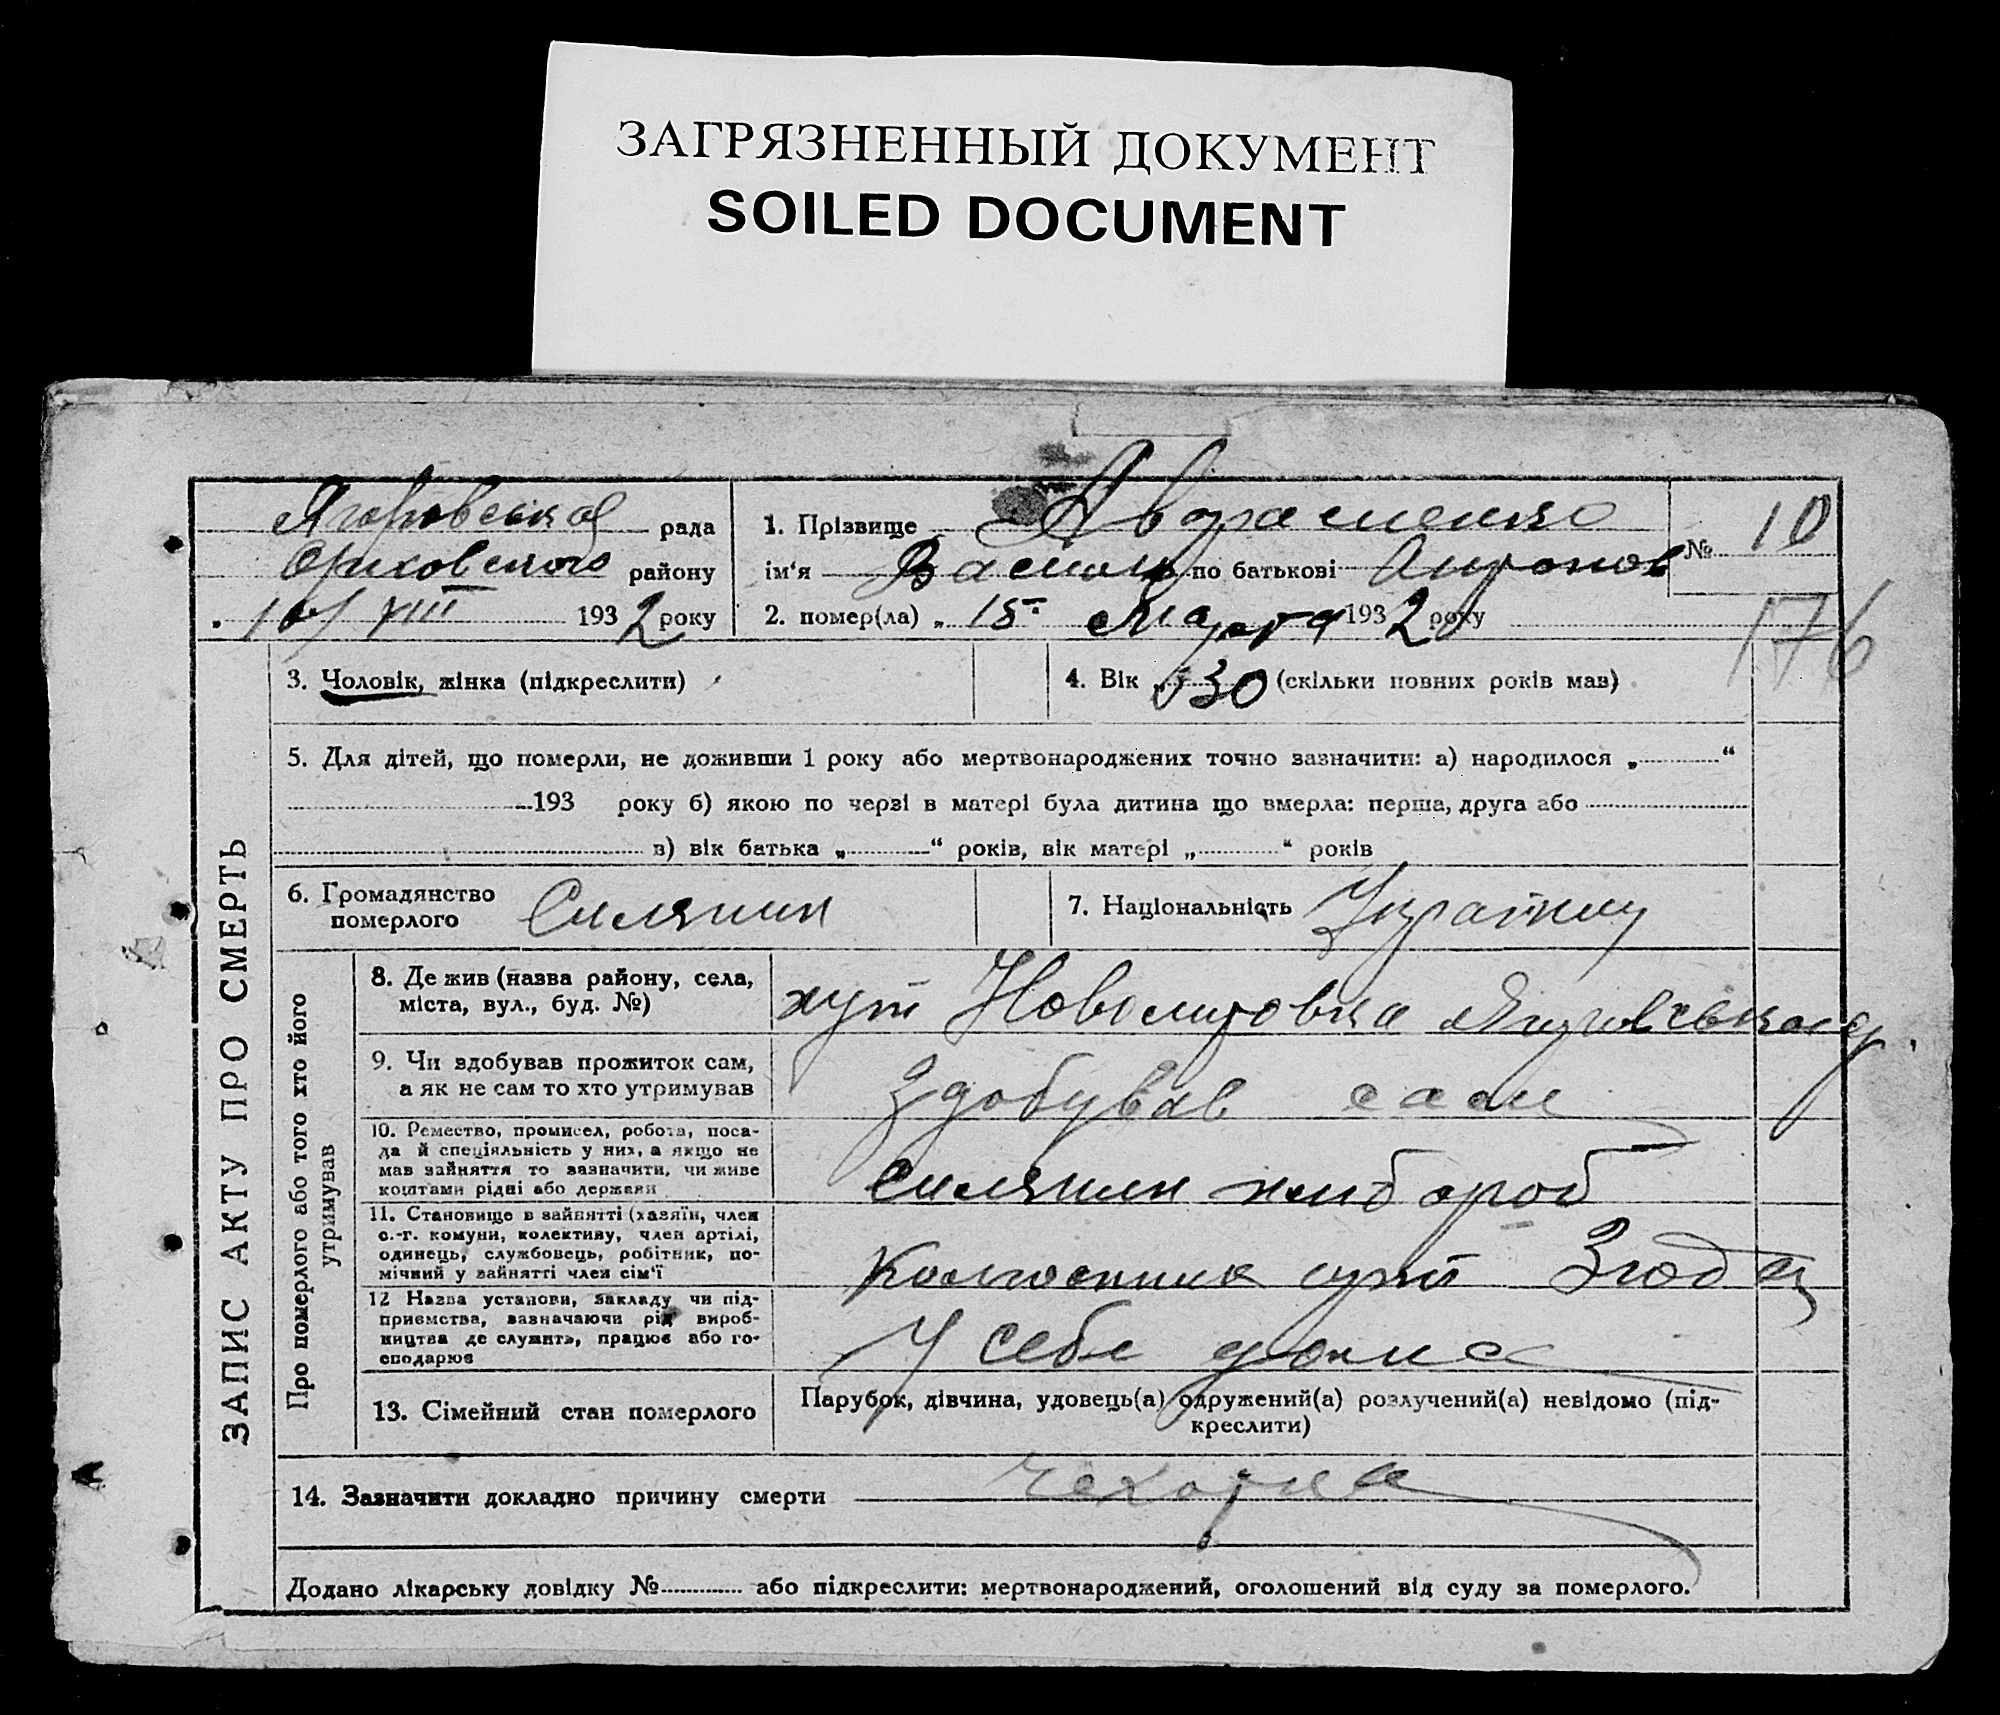 ЗАГРЯЗНЕННЫЙ ДОКУМЕНТ
SOILED DOCUMENT
рада
району
1932 року
1. Прізвище Авраменко
ім'я Василь по батькові
2. помер(ла) „15" Марта 1932 року
№ 10
176
ЗАПИС АКТУ ПРО СМЕРТЬ
3. Чоловік, жінка (підкреслити)
4. Вік 30 (скільки повних років мав)
5. Для дітей, що померли, не доживши 1 року або мертвонароджених точно зазначити: а) народилося „ “
193 року б) якою по черзі в матері була дитина що вмерла: перша, друга або
в) вік батька „ “ років, вік матері „ “ років
6. Громадянство
померлого
Силянин
7. Національність
Про померлого або того хто його
утримував
8. Де жив (назва району, села,
міста, вул., буд. №)
хут
9. Чи здобував прожиток сам,
а як не сам то хто утримував
Здобував сам
10. Ремество, промисел, робота, поса-
да й спеціяльність у них, а якщо не
мав зайняття то зазначити, чи живе
коштами рідні або держави
Силянин хлибороб
11. Становище в зайнятті (хазяїн, член
с.-г. комуни, колективу, член артілі,
одинець, службовець, робітник, по-
мічний у зайнятті член сім'ї
12 Назва установи, закладу чи під-
приємства, зазначаючи рід вироб-
ництва де служить, працює або го-
сподарює
У себе дома
13. Сімейний стан померлого
Парубок, дівчина, удовець(а) одружений(а) розлучений(а) невідомо (під-
креслити)
14. Зазначити докладно причину смерти
Додано лікарську довідку № або підкреслити: мертвонароджений, оголошений від суду за померлого.